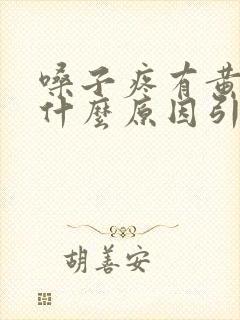 嗓子疼有黄
什麼原因引
胡善安